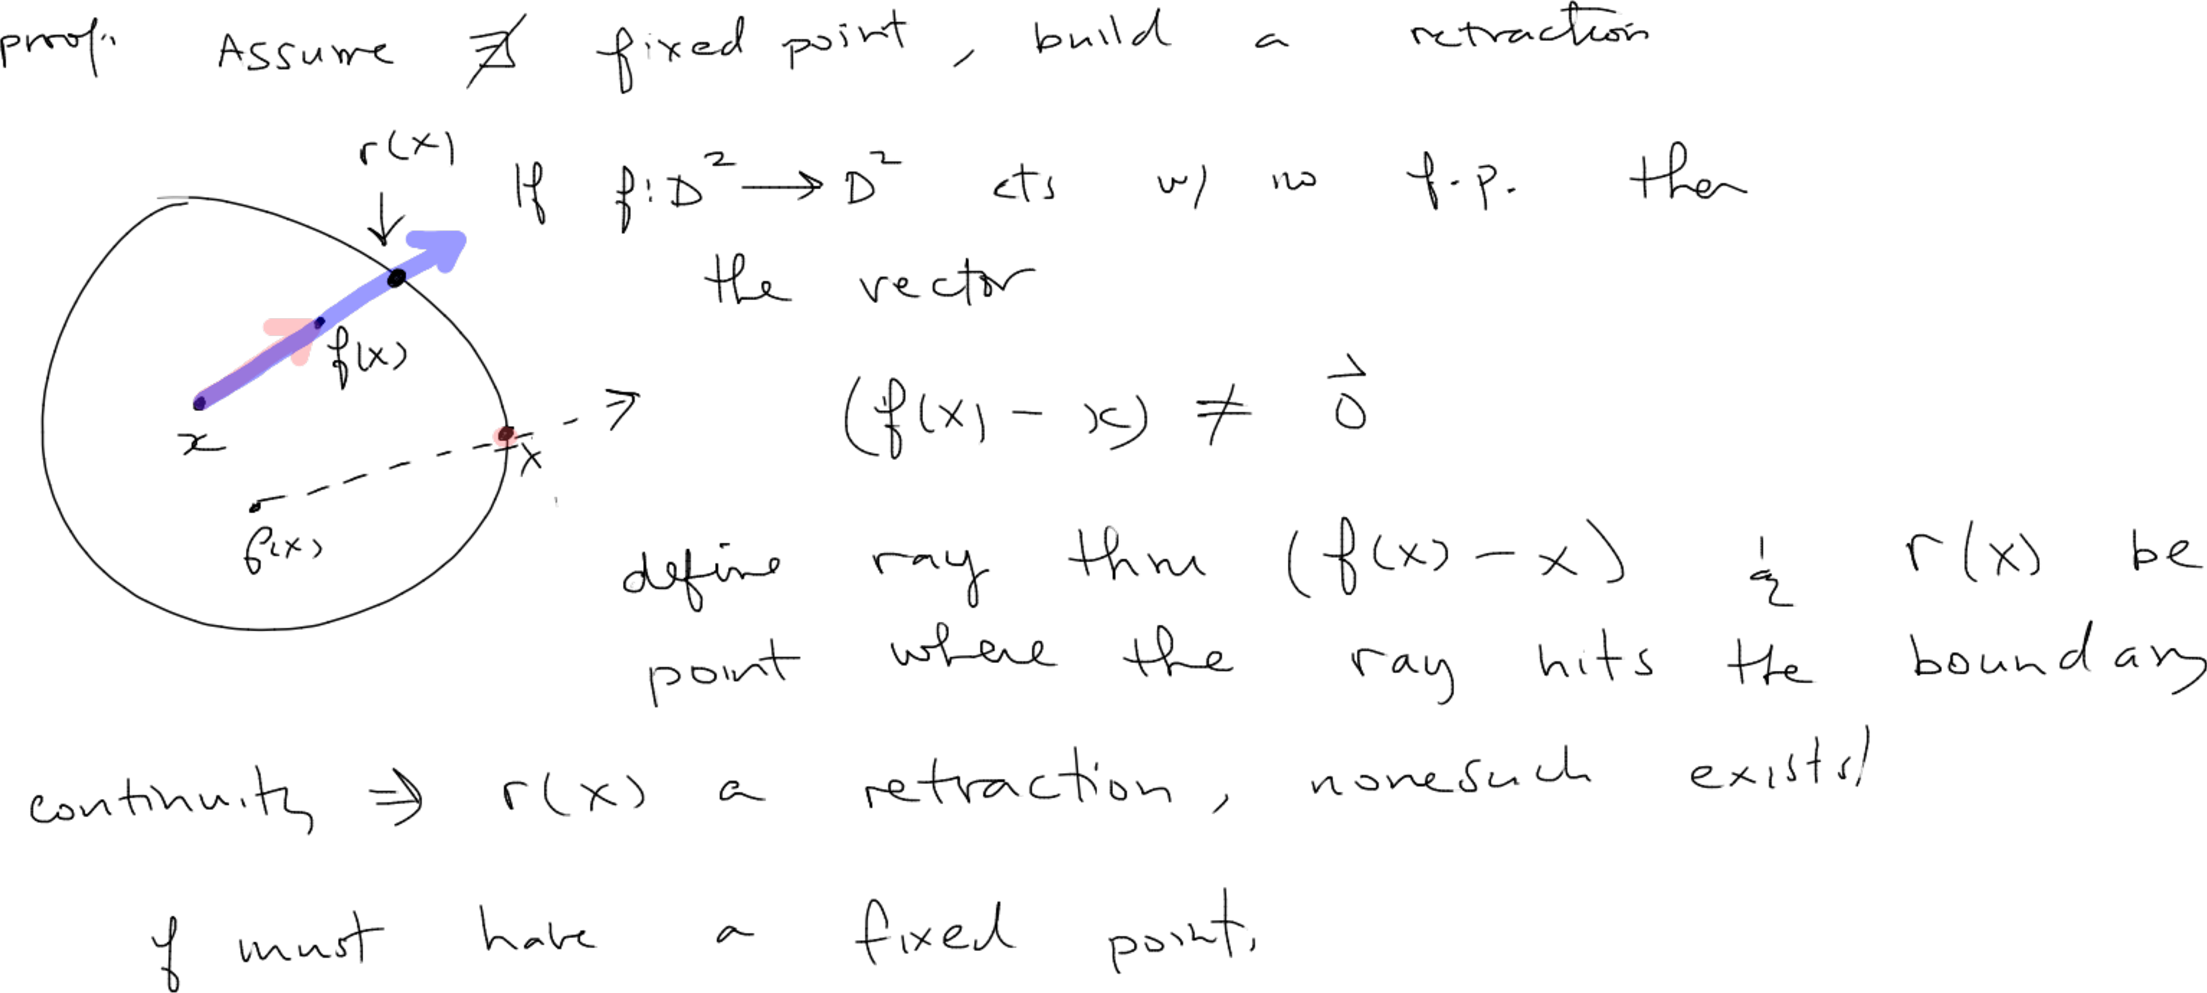 proof: Assume ∄ fixed point, build a retraction
r(x)
If f: D² → D² cts w/ no f.p. then
the vector
f(x)
x
(f(x) - x) ≠ 0⃗
x
f(x)
define ray thru (f(x) - x) & r(x) be
point where the ray hits the boundary
continuity ⇒ r(x) a retraction, nonesuch exists!
f must have a fixed point.